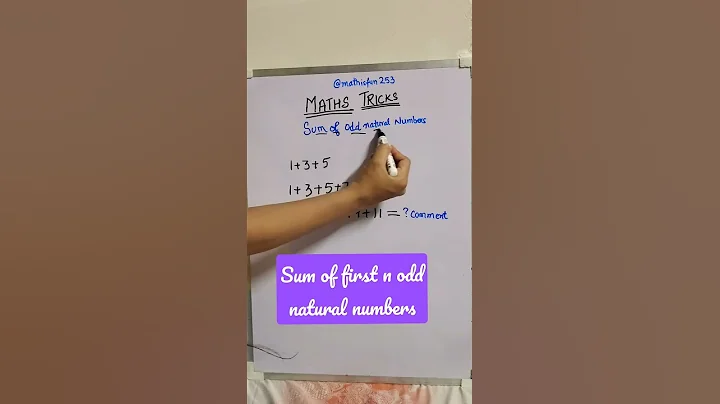 @mathisfun253
MATHS TRICKS
Sum of odd natural Numbers
1+3+5
1+3+5+7
+11 = ? Comment
Sum of first n odd
natural numbers